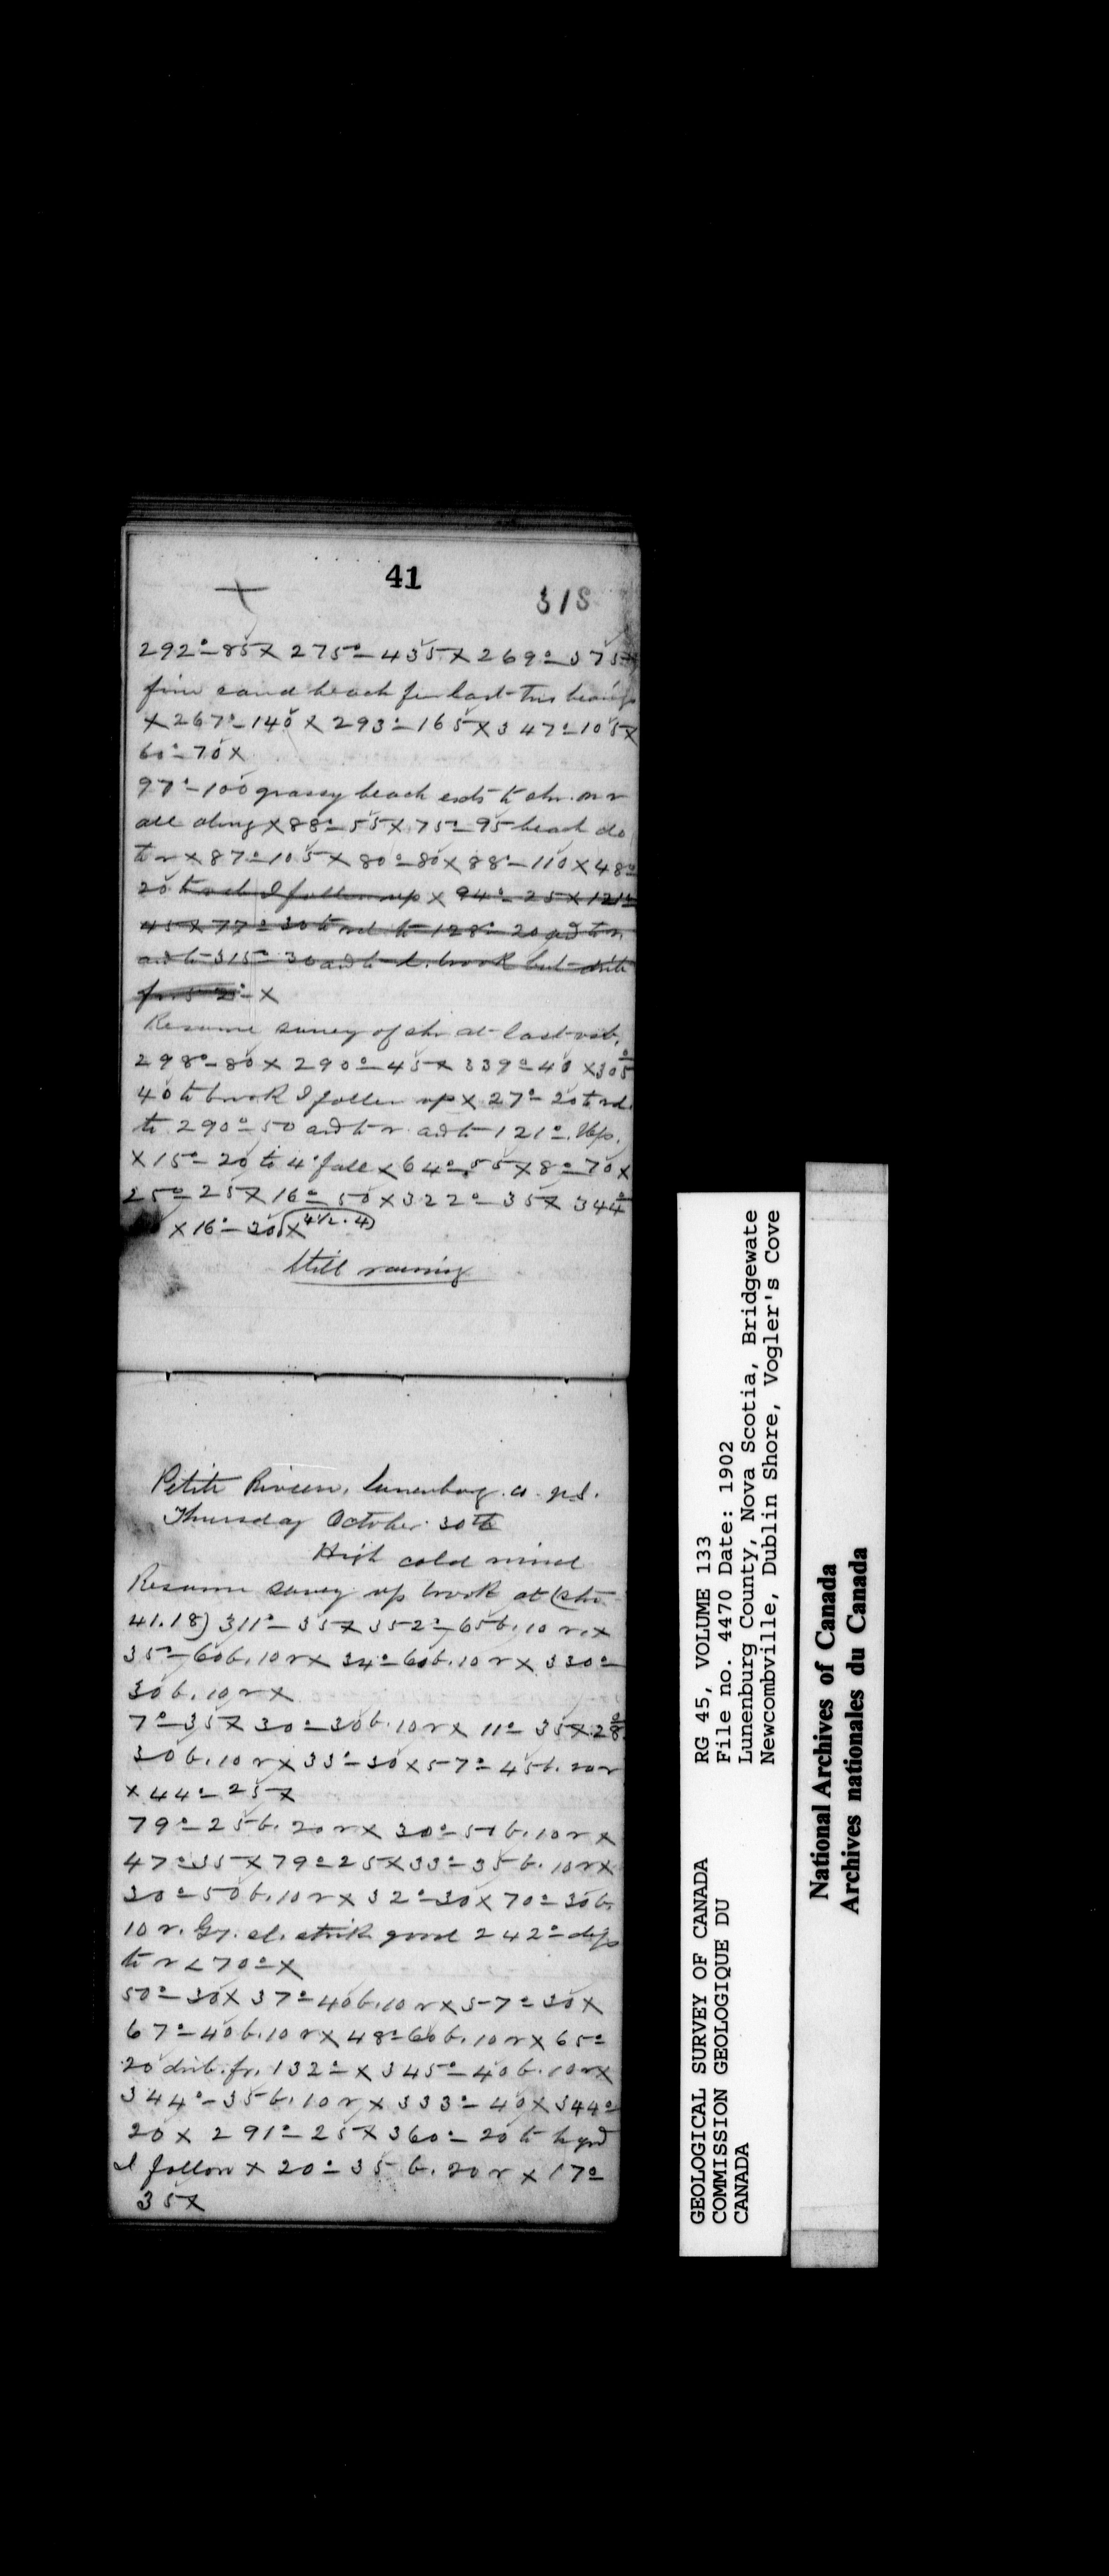 41
318
292°-85 X 275°-435 X 269°-375 X
fine sand beach for last two bearings
X 267°-140 X 293°-165 X 347°-105 X
60°-70 X
97°-100 grassy beach exts to shr. on r
all along X 88°-55 X 75°-95 beach do
to r X 87°-105 X 80°-80 X 88°-110 X 48°
20 to rd I follow up X 94°-25 X 121°
45 X 77°-30 to rd. to 128°-20 and to r.
and to 315°-30 and to brook but
X
Resume survey of shr at last
298°-80 X 290°-45 X 339°-40 X 305°
40 to brook I follow up X 27°-20 to rd.
to 290°-50 and to r and to 121°. Up.
X 15°-20 to 4' fall X 64°-55 X 8°-70 X
25°-25 X 16°-50 X 322°-35 X 344°
X 16°-20 X 4½.4)
Still raining
Petite Riviere, Lunenburg Co. N.S.
Thursday October 30th
High cold wind
Resume survey up brook at (shr
41.18) 311°-35 X 352°-65 b. 10 r. X
35°-60 b. 10 r X 34°-60 b. 10 r X 330°
30 b. 10 r X
7°-35 X 30°-30 b. 10 r X 11°-35 X 28°
30 b. 10 r X 33°-30 X 57°-45 b. 20 r
X 44°-25 X
79°-25 b. 20 r X 30°-50 b. 10 r X
47°-35 X 79°-25 X 33°-35 b. 10 r X
30°-50 b. 10 r X 32°-30 X 70°-30 b.
10 r. Gy. sl. strike good 242° dips
to r < 70° X
50°-30 X 37°-40 b. 10 r X 57°-30 X
67°-40 b. 10 r X 48°-60 b. 10 r X 65°
20 dirb. fr. 132° X 345°-40 b. 10 r X
344°-35 b. 10 r X 333°-40 X 344°
20 X 291°-25 X 360°-20 to
I follow X 20°-35 b. 20 r X 17°
35 X
GEOLOGICAL SURVEY OF CANADA
COMMISSION GEOLOGIQUE DU
CANADA
RG 45, VOLUME 133
File no. 4470 Date: 1902
Lunenburg County, Nova Scotia, Bridgewate
Newcombville, Dublin Shore, Vogler's Cove
National Archives of Canada
Archives nationales du Canada